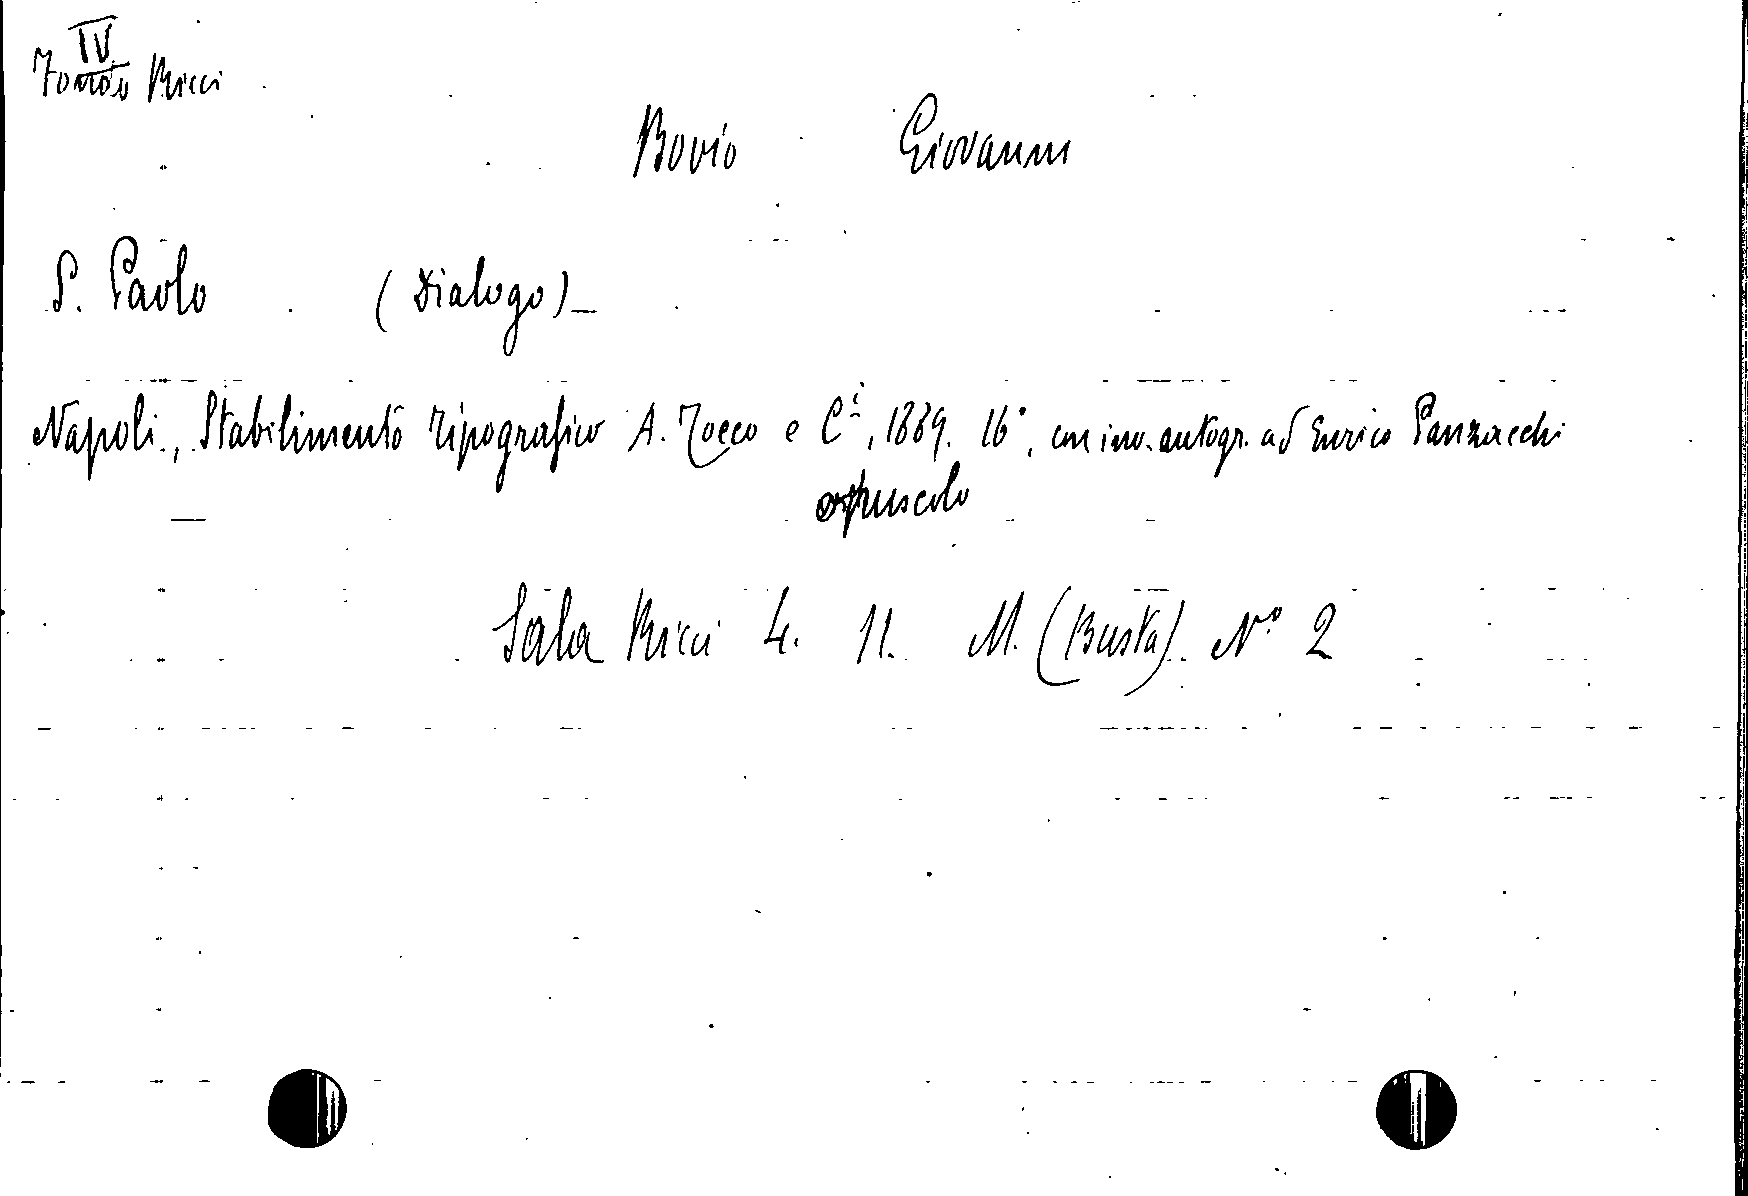 IV
Fondo Ricci
Bovio Giovanni
S. Paolo (Dialogo) -
Napoli, Stabilimento tipografico A. Tocco e C.i, 1889. 16°, con inv. autogr. ad Enrico Panzacchi
opuscolo
Sala Ricci 4. 11. M. (Busta). N° 2